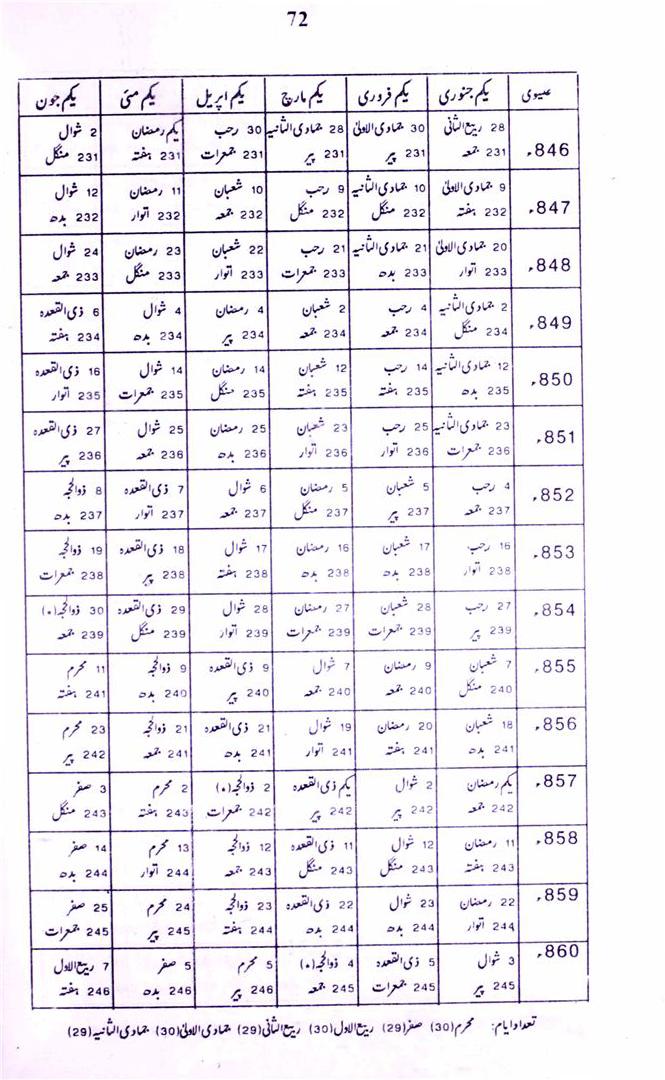 72
عیسوی یکم جنوری یکم فروری یکم مارچ یکم اپریل یکم مئی یکم جون
846ء 28 ربیع الثانی 30 جمادی الاولیٰ 28 جمادی الثانیہ 30 رجب یکم رمضان 2 شوال
231 جمعہ 231 پیر 231 پیر 231 جمعرات 231 ہفتہ 231 منگل
847ء 9 جمادی الاولیٰ 10 جمادی الثانیہ 9 رجب 10 شعبان 11 رمضان 12 شوال
232 ہفتہ 232 منگل 232 منگل 232 جمعہ 232 اتوار 232 بدھ
848ء 20 جمادی الاولیٰ 21 جمادی الثانیہ 21 رجب 22 شعبان 23 رمضان 24 شوال
233 اتوار 233 بدھ 233 جمعرات 233 اتوار 233 منگل 233 جمعہ
849ء 2 جمادی الثانیہ 4 رجب 2 شعبان 4 رمضان 4 شوال 6 ذی القعدہ
234 منگل 234 جمعہ 234 جمعہ 234 پیر 234 بدھ 234 ہفتہ
850ء 12 جمادی الثانیہ 14 رجب 12 شعبان 14 رمضان 14 شوال 16 ذی القعدہ
235 بدھ 235 ہفتہ 235 ہفتہ 235 منگل 235 جمعرات 235 اتوار
851ء 23 جمادی الثانیہ 25 رجب 23 شعبان 25 رمضان 25 شوال 27 ذی القعدہ
236 جمعرات 236 اتوار 236 اتوار 236 بدھ 236 جمعہ 236 پیر
852ء 4 رجب 5 شعبان 5 رمضان 6 شوال 7 ذی القعدہ 8 ذوالحجہ
237 جمعہ 237 پیر 237 منگل 237 جمعہ 237 اتوار 237 بدھ
853ء 16 رجب 17 شعبان 16 رمضان 17 شوال 18 ذی القعدہ 19 ذوالحجہ
238 اتوار 238 بدھ 238 بدھ 238 ہفتہ 238 پیر 238 جمعرات
854ء 27 رجب 28 شعبان 27 رمضان 28 شوال 29 ذی القعدہ 30 ذوالحجہ(٭)
239 پیر 239 جمعرات 239 جمعرات 239 اتوار 239 منگل 239 جمعہ
855ء 7 شعبان 9 رمضان 7 شوال 9 ذی القعدہ 9 ذوالحجہ 11 محرم
240 منگل 240 جمعہ 240 جمعہ 240 پیر 240 بدھ 241 ہفتہ
856ء 18 شعبان 20 رمضان 19 شوال 21 ذی القعدہ 21 ذوالحجہ 23 محرم
241 بدھ 241 ہفتہ 241 اتوار 241 بدھ 241 جمعہ 242 پیر
857ء یکم رمضان 2 شوال یکم ذی القعدہ 2 ذوالحجہ(٭) 2 محرم 3 صفر
242 جمعہ 242 پیر 242 پیر 242 جمعرات 243 ہفتہ 243 منگل
858ء 11 رمضان 12 شوال 11 ذی القعدہ 12 ذوالحجہ 13 محرم 14 صفر
243 ہفتہ 243 منگل 243 منگل 243 جمعہ 244 اتوار 244 بدھ
859ء 22 رمضان 23 شوال 22 ذی القعدہ 23 ذوالحجہ 24 محرم 25 صفر
244 اتوار 244 بدھ 244 بدھ 244 ہفتہ 245 پیر 245 جمعرات
860ء 3 شوال 5 ذی القعدہ 4 ذوالحجہ(٭) 5 محرم 5 صفر 7 ربیع الاول
245 پیر 245 جمعرات 245 جمعہ 246 پیر 246 بدھ 246 ہفتہ
تعداد ایام: محرم(30) صفر(29) ربیع الاول(30) ربیع الثانی(29) جمادی الاولیٰ(30) جمادی الثانیہ(29)